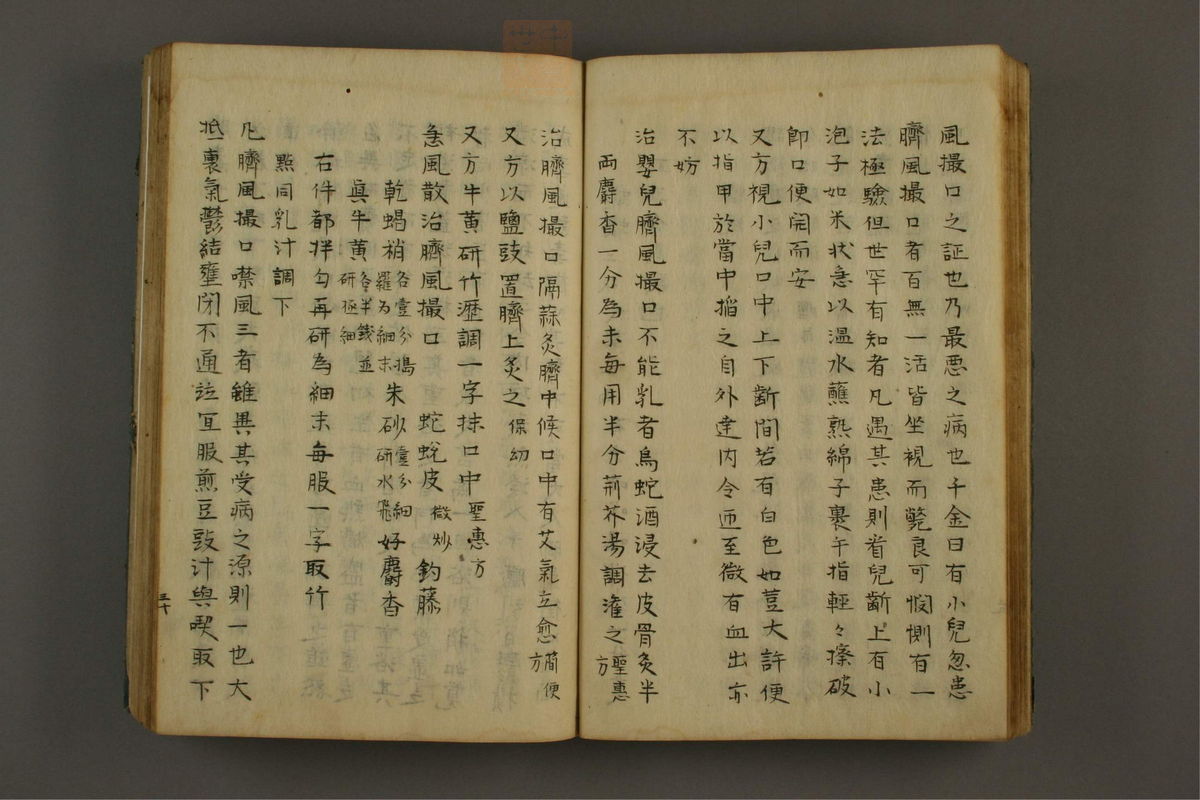 風撮口之証也乃最悪之病也千金曰有小兒忽患
臍風撮口者百無一活皆坐視而斃良可憫惻有一
法極驗但世罕有知者凡遇其患則看兒齗上有小
泡子如米状急以温水蘸熟綿子裹午指輕々擦破
即口便開而安
又方視小兒口中上下齗間若有白色如荳大許便
以指甲於當中搯之自外達内令匝至微有血出亦
不妨
治嬰兒臍風撮口不能乳者烏蛇酒浸去皮骨灸半
兩麝香一分為末每用半分荊芥湯調灌之 聖惠方
治臍風撮口隔蒜灸臍中候口中有艾氣立愈 簡便方
又方以鹽豉置臍上灸之 保幼
又方牛黄研竹瀝調一字抹口中 聖惠方
急風散治臍風撮口 蛇蛻皮 微炒 釣藤
乾蝎梢 各壹分搗羅為細末 朱砂 壹分細研水飛 好麝香
真牛黄 各半錢並研極細
右件都拌匀再研為細末每服一字取竹
點同乳汁調下
凡臍風撮口噤風三者雖異其受病之源則一也大
抵裏氣鬱結壅閉不通並宜服煎豆豉汁與喫取下
三十